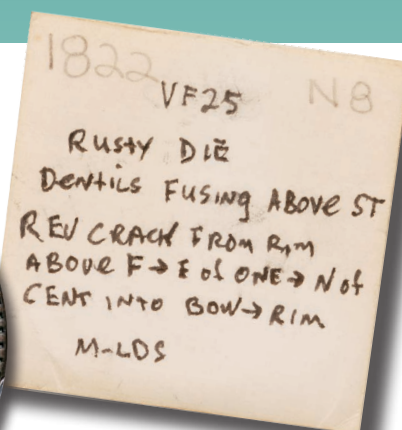 1822 N8
VF25
RUSTY DIE
DENTILS FUSING ABOVE ST
REV CRACK FROM RIM
ABOVE F→E of ONE→N of
CENT INTO BOW→RIM
M-LDS